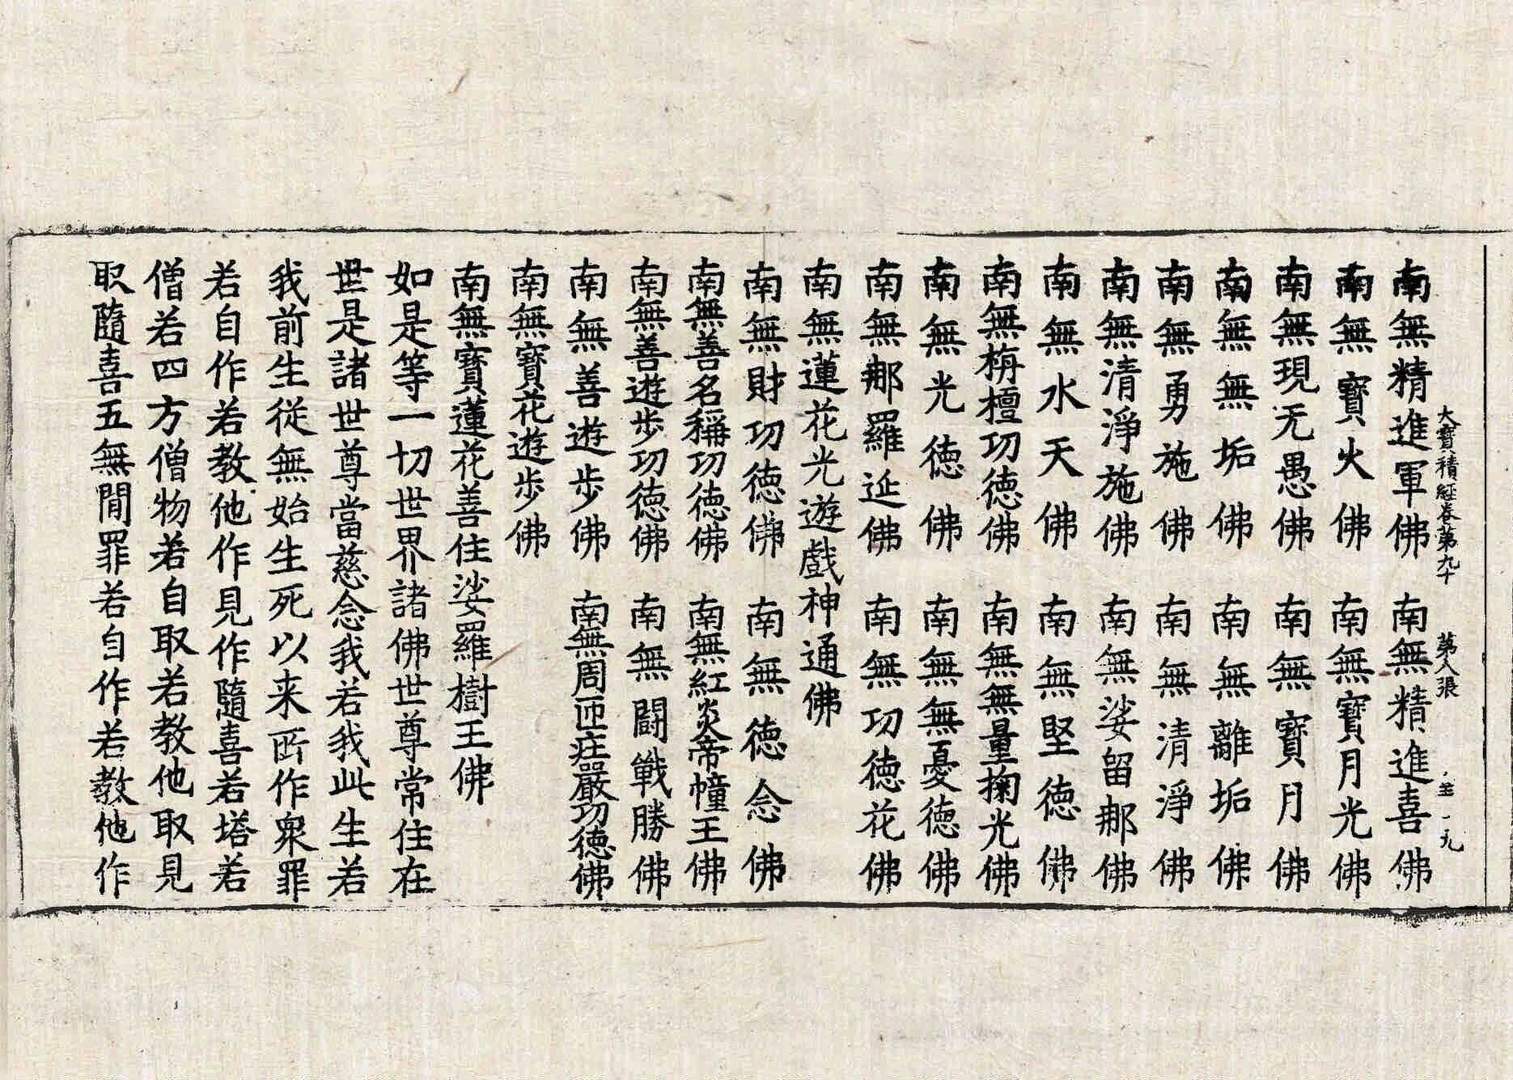 大寶積經卷第九十 第八張
南無精進軍佛 南無精進喜佛
南無寶火佛 南無寶月光佛
南無現无愚佛 南無寶月佛
南無無垢佛 南無離垢佛
南無勇施佛 南無清淨佛
南無清淨施佛 南無娑留那佛
南無水天佛 南無堅德佛
南無栴檀功德佛 南無無量掬光佛
南無光德佛 南無無憂德佛
南無那羅延佛 南無功德花佛
南無蓮花光遊戲神通佛
南無財功德佛 南無德念佛
南無善名稱功德佛 南無紅炎帝幢王佛
南無善遊步功德佛 南無鬪戰勝佛
南無善遊步佛 南無周匝莊嚴功德佛
南無寶花遊步佛
南無寶蓮花善住娑羅樹王佛
如是等一切世界諸佛世尊常住在
世是諸世尊當慈念我若我此生若
我前生從無始生死以来所作衆罪
若自作若教他作見作隨喜若塔若
僧若四方僧物若自取若教他取見
取隨喜五無間罪若自作若教他作